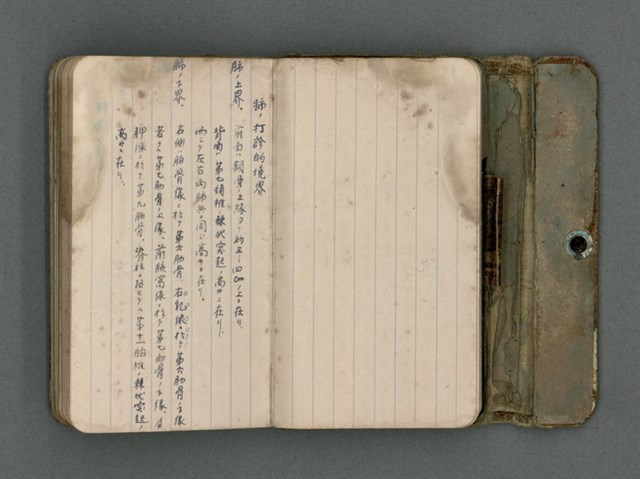 肺ノ打診的境界
肺ノ上界、前面ハ鎖骨ノ上縁ヨリ約三—四cm上ニ在リ、
背面ハ第七頸椎棘状突起ノ高サニ在リ、
而シテ左右両肺共ニ同ジ高サニ在リ。
肺ノ下界、右側ハ胸骨縁ニ於テ第六肋骨 右乳線ニ於テ第六肋骨ノ下縁
若クハ第七肋骨ノ上縁、前腋窩線ニ於テ第七肋骨ノ下縁、
肩胛線ニ於テ第九肋骨、脊柱ノ ハ第十一胸椎ノ棘状突起ノ
高サニ在リ、